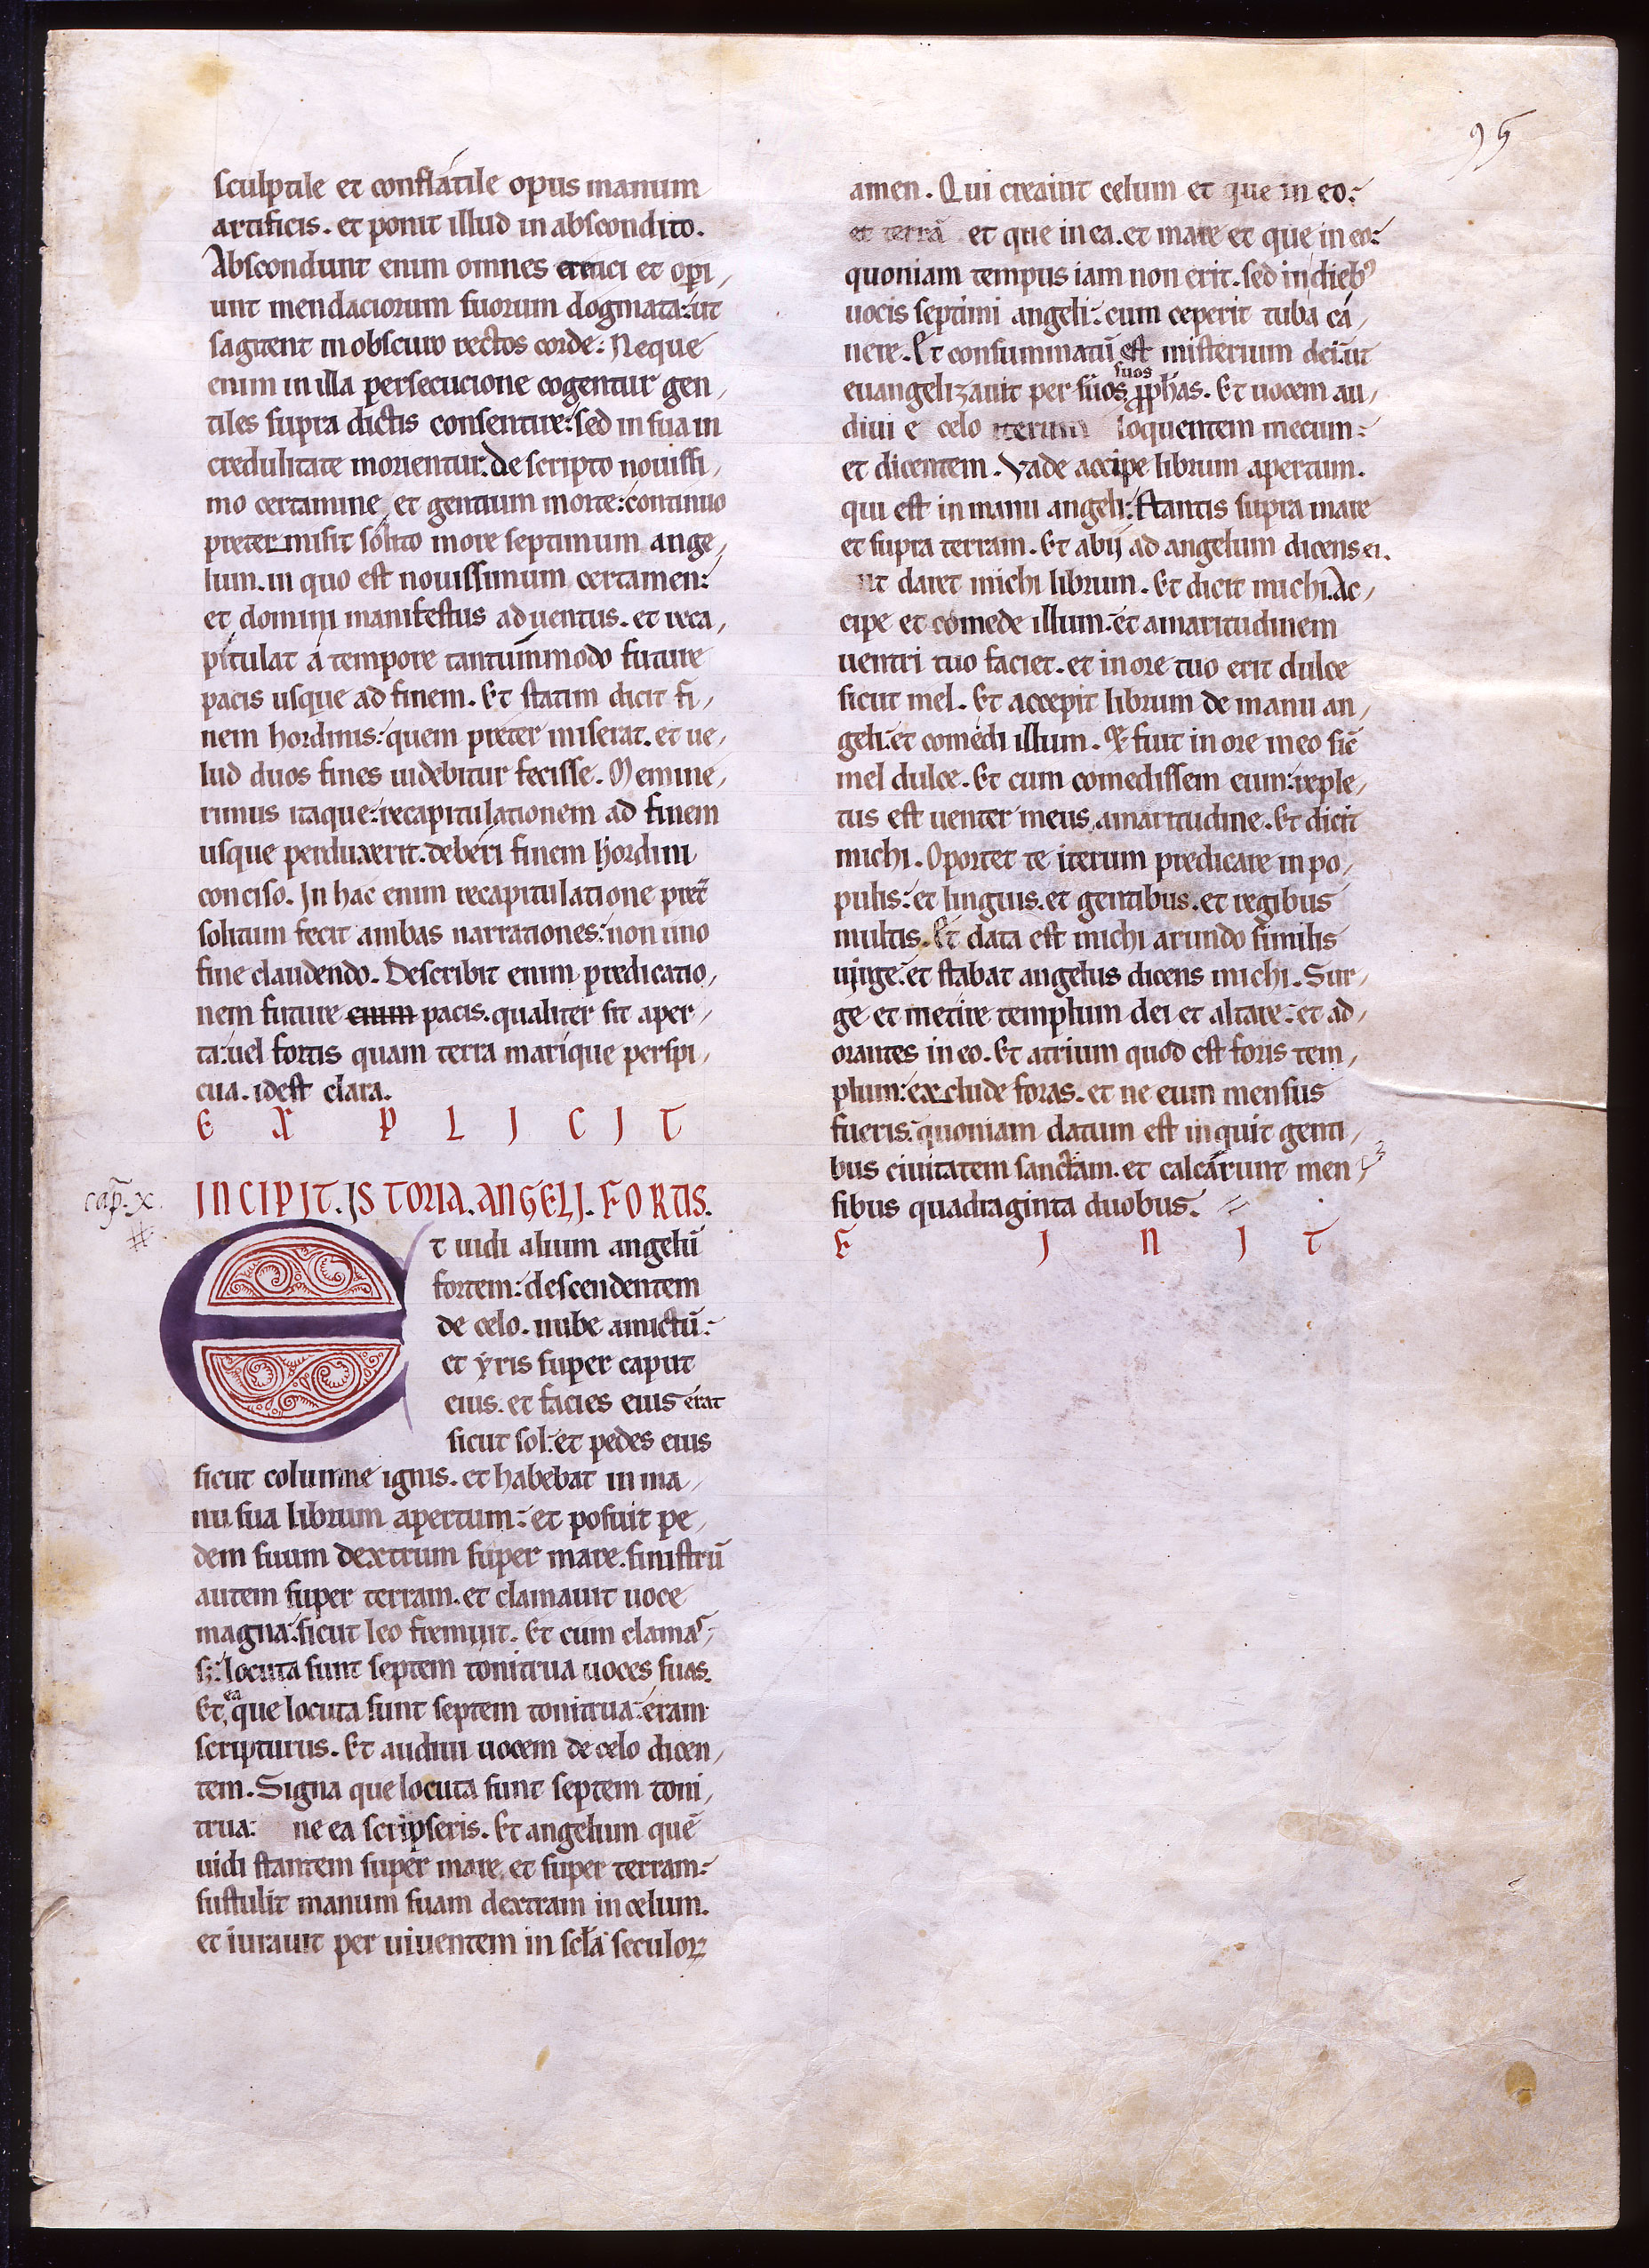 95
sculptile et conflatile opus manum
artificis. et ponit illud in abscondito.
Abscondunt enim omnes eretici et operi,
unt mendaciorum suorum dogmata: ut
sagitent in obscuro rectos corde: Neque
enim in illa persecucione cogentur gen,
tiles supra dictis consentire: sed in sua in
credulitate morientur. descripto novissi,
mo certamine, et gentium morte: continuo
pretermisit solito more septimum ange,
lum. in quo est novissimum certamen:
et domini manifestus adventus. et reca,
pitulat a tempore tantummodo future
pacis usque ad finem. Et statim dicit fi,
nem hordinis: quem pretermiserat. et ve,
lud duos fines videbitur fecisse. Memine,
rimus itaque: recapitulationem ad finem
usque perduxerit. deberi finem hordini
conciso. In hac enim recapitulatione pret̄
solitum fecit ambas narrationes: non uno
fine claudendo. Describit enim predicatio,
nem future enim pacis. qualiter sit aper,
ta: vel fortis quam terra marique perspi,
cua. idest clara.
E X P L I C I T
cap. x.
INCIPIT. ISTORIA. ANGELI. FORTIS.
Et vidi alium angelū
fortem: descendentem
de celo. nube amictū:
et yris super caput
eius. et facies eius erat
sicut sol: et pedes eius
sicut columne ignis. et habebat in ma,
nu sua librum apertum: et posuit pe,
dem suum dextrum super mare. sinistrū
autem super terram. et clamavit voce
magna: sicut leo fremuit. Et cum clamas,
s;: locuta sunt septem tonitrua voces suas.
Et ea que locuta sunt septem tonitrua: eram
scripturus. Et audivi vocem de celo dicen,
tem. Signa que locuta sunt septem toni,
trua: ne ea scripseris. Et angelum quē
vidi stantem super mare, et super terram:
sustulit manum suam dextram in celum.
et iuravit per viventem in scl̄a seculorꝝ
amen. Qui creavit celum et que in eo:
et terrā et que in ea. et mare et que in eo:
quoniam tempus iam non erit. sed in dieb⁹
vocis septimi angeli: cum ceperit tuba ca,
nere. Et consummatū est misterium dei: ut
evangelizavit per suos suos pp̄has. Et vocem au,
divi e celo iterum loquentem mecum:
et dicentem. Vade accipe librum apertum.
qui est in manu angeli: stantis supra mare
et supra terram. Et abij ad angelum dicens ei.
ut daret michi librum. Et dicit michi. Ac,
cipe et comede illum: et amaritudinem
ventri tuo faciet. et in ore tuo erit dulce
sicut mel. Et accepit librum de manu an,
geli: et comedi illum. & fuit in ore meo sic̄
mel dulce. Et cum comedissem eum: reple,
tus est venter meus amaritudine. Et dicit
michi. Oportet te iterum predicare in po,
pulis: et linguis. et gentibus. et regibus
multis. Et data est michi arundo similis
virge: et stabat angelus dicens michi. Sur,
ge et metire templum dei et altare: et ad,
orantes in eo. Et atrium quod est foris tem,
plum: exclude foras. et ne eum mensus
fueris: quoniam datum est inquit genti,
bus civitatem sanctam. et calcarunt men,
sibus quadraginta duobus.
F I N I T